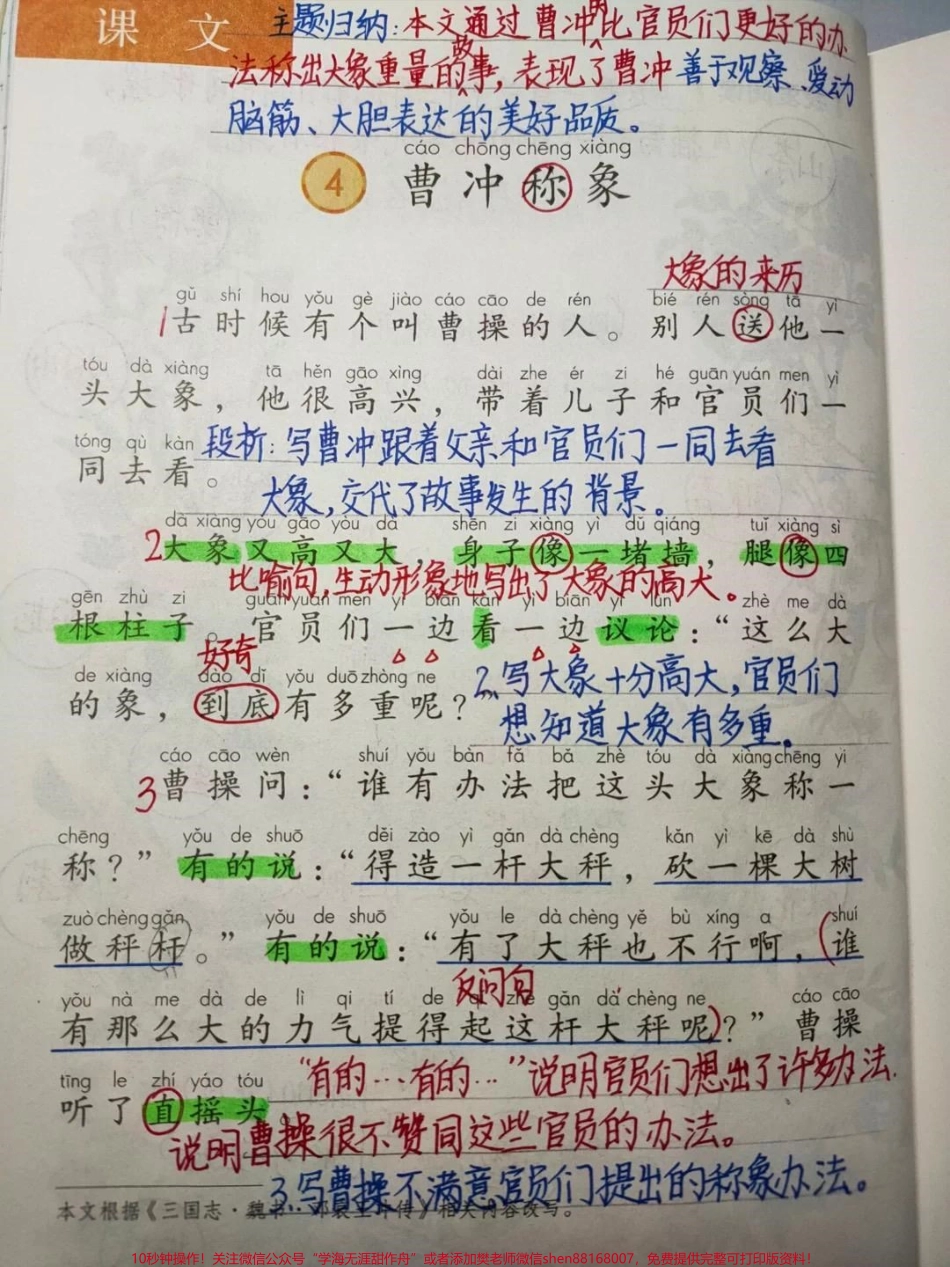 课 文
主题归纳:本文通过曹冲的比官员们更好的办
法称出大象重量的故事,表现了曹冲善于观察、爱动
脑筋、大胆表达的美好品质。
cáo chōng chēng xiàng
4 曹冲称象
大象的来历
gǔ shí hou yǒu gè jiào cáo cāo de rén bié rén sòng tā yì
1古时候有个叫曹操的人。别人送他一
tóu dà xiàng tā hěn gāo xìng dài zhe ér zi hé guān yuán men yì
头大象,他很高兴,带着儿子和官员们一
tóng qù kàn
同去看。
段析:写曹冲跟着父亲和官员们一同去看
大象,交代了故事发生的背景。
dà xiàng yòu gāo yòu dà shēn zi xiàng yì dǔ qiáng tuǐ xiàng sì
2大象又高又大,身子像一堵墙,腿像四
比喻句,生动形象地写出了大象的高大。
gēn zhù zi guān yuán men yì biān kàn yì biān yì lùn zhè me dà
根柱子。官员们一边看一边议论:“这么大
好奇
de xiàng dào dǐ yǒu duō zhòng ne
的象,到底有多重呢?
2.写大象十分高大,官员们
想知道大象有多重。
cáo cāo wèn shuí yǒu bàn fǎ bǎ zhè tóu dà xiàng chēng yi
3曹操问:“谁有办法把这头大象称一
chēng yǒu de shuō děi zào yì gǎn dà chèng kǎn yì kē dà shù
称?”有的说:“得造一杆大秤,砍一棵大树
zuò chèng gǎn yǒu de shuō yǒu le dà chèng yě bù xíng a shuí
做秤杆。”有的说:“有了大秤也不行啊,谁
反问句
yǒu nà me dà de lì qi tí de qǐ zhè gǎn dà chèng ne cáo cāo
有那么大的力气提得起这杆大秤呢?”曹操
tīng le zhí yáo tóu
听了直摇头
“有的…有的…”说明官员们想出了许多办法.
说明曹操很不赞同这些官员的办法。
3.写曹操不满意官员们提出的称象办法。
本文根据《三国志·魏书·邓哀王冲传》相关内容改写。
10秒钟操作!关注微信公众号“学海无涯甜作舟”或者添加樊老师微信shen88168007,免费提供完整可打印版资料!